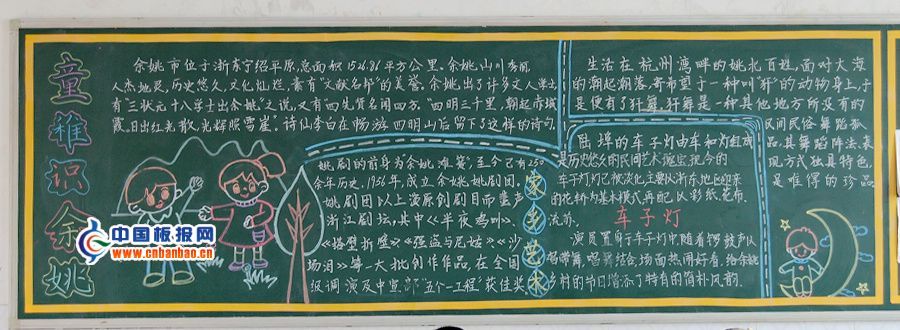 童稚识余姚
余姚市位于浙东宁绍平原,总面积1526.86平方公里。余姚山川秀丽,
人杰地灵,历史悠久,文化灿烂,素有"文献名邦"的美誉。余姚出了许多文人学士,
有"三状元十八学士出余姚"之说,又有"四先贤名闻四方。"四明三千里,朝起赤城
霞。日出红光散,光辉照雪崖"。诗仙李白在畅游四明山后留下了这样的诗句。
姚剧的前身为余姚滩簧",至今已有250
余年历史,1956年,成立余姚姚剧团。
姚剧团以上演原创剧目而蜚声
浙江剧坛,其中《半夜鸡叫》、
《搭壁拆壁》《强盗与尼姑》《沙
场泪》等一大批创作作品,在全国
级调演及中宣部"五个一工程"获佳奖
家乡艺术
生活在杭州湾畔的姚北百姓,面对大海
的潮起潮落,寄希望于一种叫"犴"的动物身上,于
是便有了犴舞。犴舞是一种其他地方所没有的
民间民俗舞蹈
品,其舞蹈阵法、表
现方式独具特色,
是难得的珍品
陆埠的车子灯由车和灯组成
是历史悠久的民间艺术瑰宝现今的
车子灯灯已被淡化主要以浙东地区迎亲
的花轿为基本模式再配以彩纸、花布、
流苏。
车子灯
演员置身于车子灯中随着锣鼓声队
唱舞结合,场面热闹好看,给余姚
乡村的节日增添了特有的简朴风韵。
中国板报网
www.cnbanbao.cn